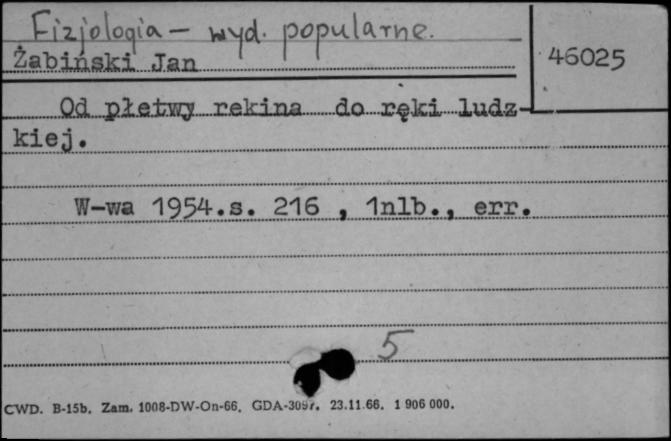 Fizjologia – wyd. popularne.
Żabiński Jan
46025
Od płetwy rekina do ręki ludz-
kiej.
W-wa 1954.s. 216 , 1nlb., err.
5
CWD. B-15b. Zam. 1008-DW-On-66. GDA-3097. 23.11.66. 1 906 000.